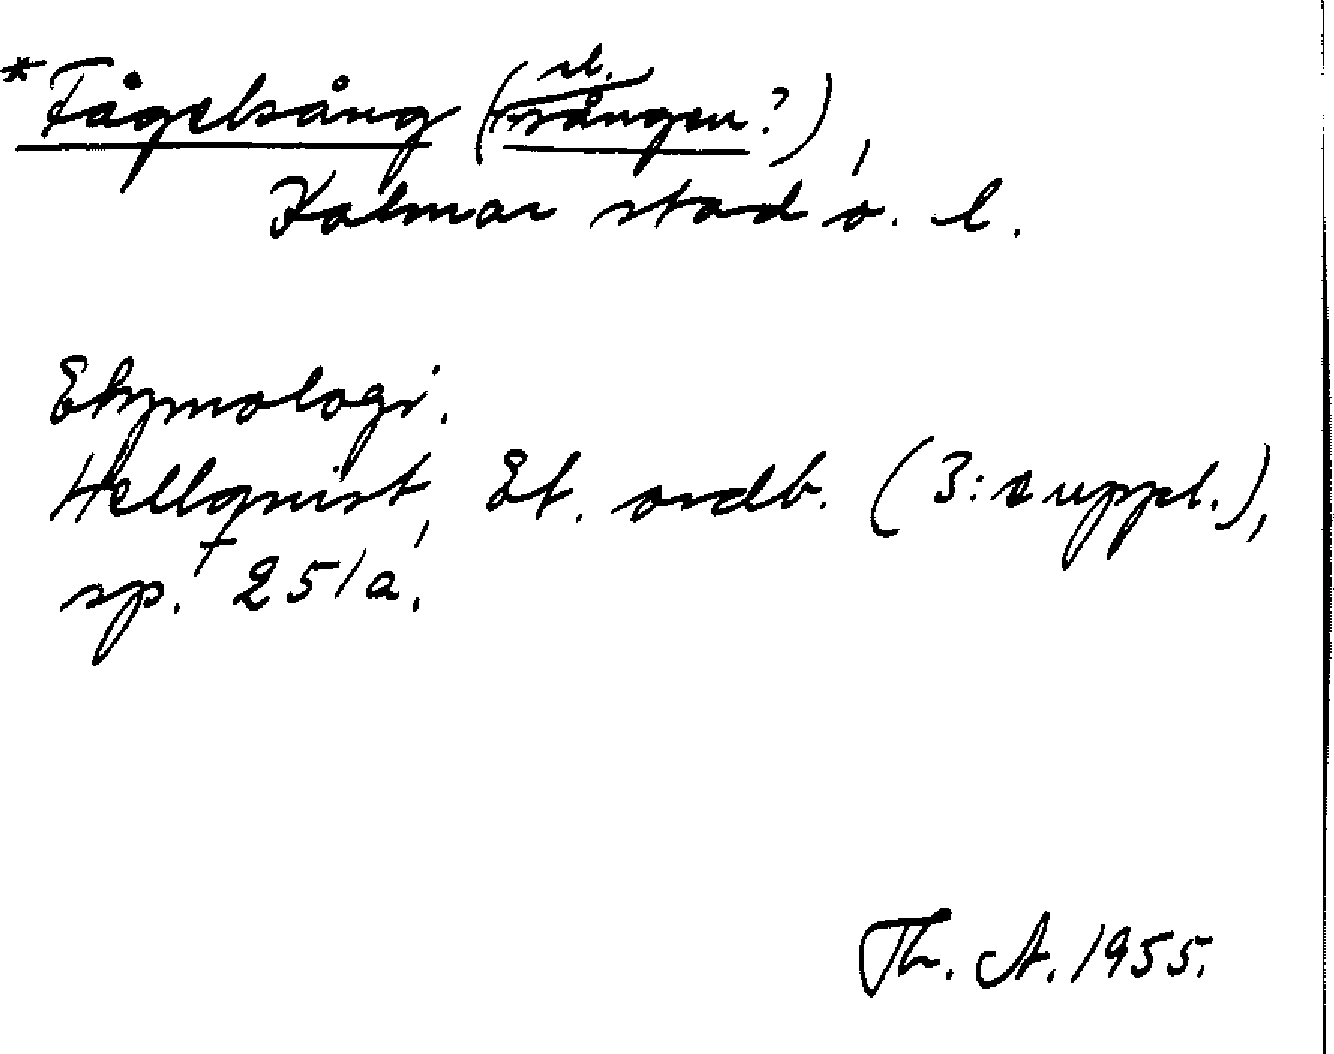 *Fågelsång (el. -sången?),
Kalmar stad o. l.
Etymologi.
Hellqvist, Et. ordb. (3: suppl.),
sp. 251 a.
Th. A. 1955.